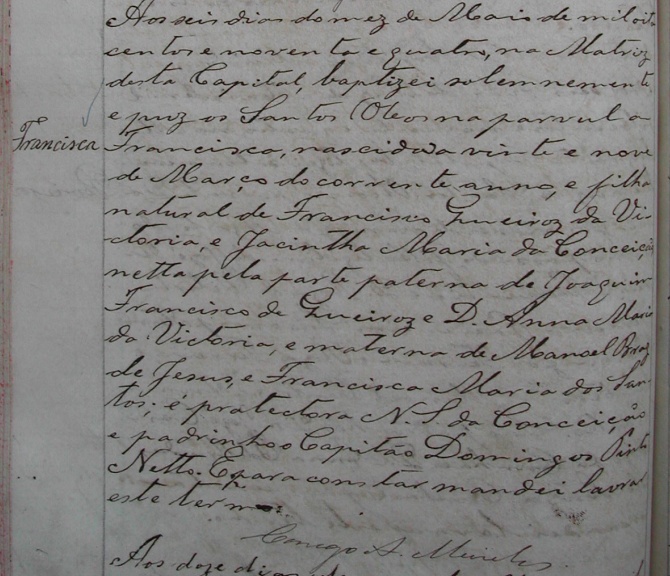 Aos seis dias do mez de Maio de mil oito
centos e noventa e quatro, na Matriz
desta Capital, baptizei solemnemente
e puz os Santos Oleos na parvula
Francisca
Francisca, nascida a vinte e nove
de Março do corrente anno, e filha
natural de Francisco Queiroz da Vi-
ctoria, e Jacintha Maria da Conceição
netta pela parte paterna de Joaquim
Francisco de Queiroz e D. Anna Maria
da Victoria, e materna de Manoel Braz
de Jesus, e Francisca Maria dos San-
tos; é protectora N. S. da Conceição
e padrinho o Capitão Domingos Pinto
Netto. E para constar mandei lavrar
este termo.
Conego A. Meirelles.
Aos doze dias